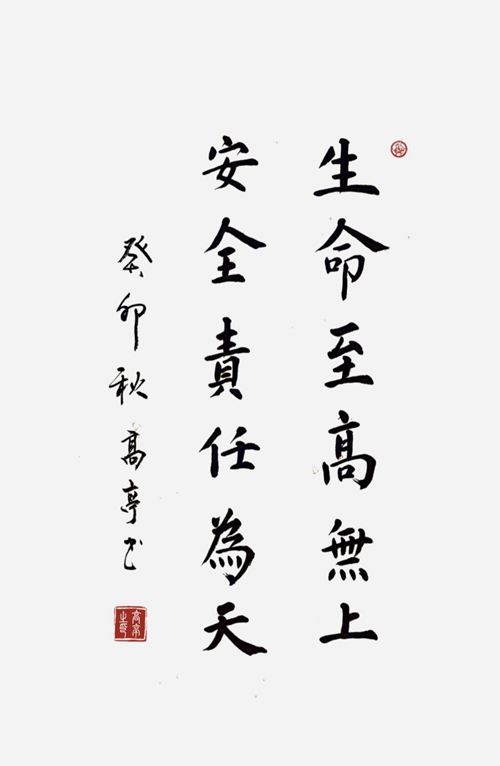 生命至高無上
安全責任為天
癸卯秋高亭书